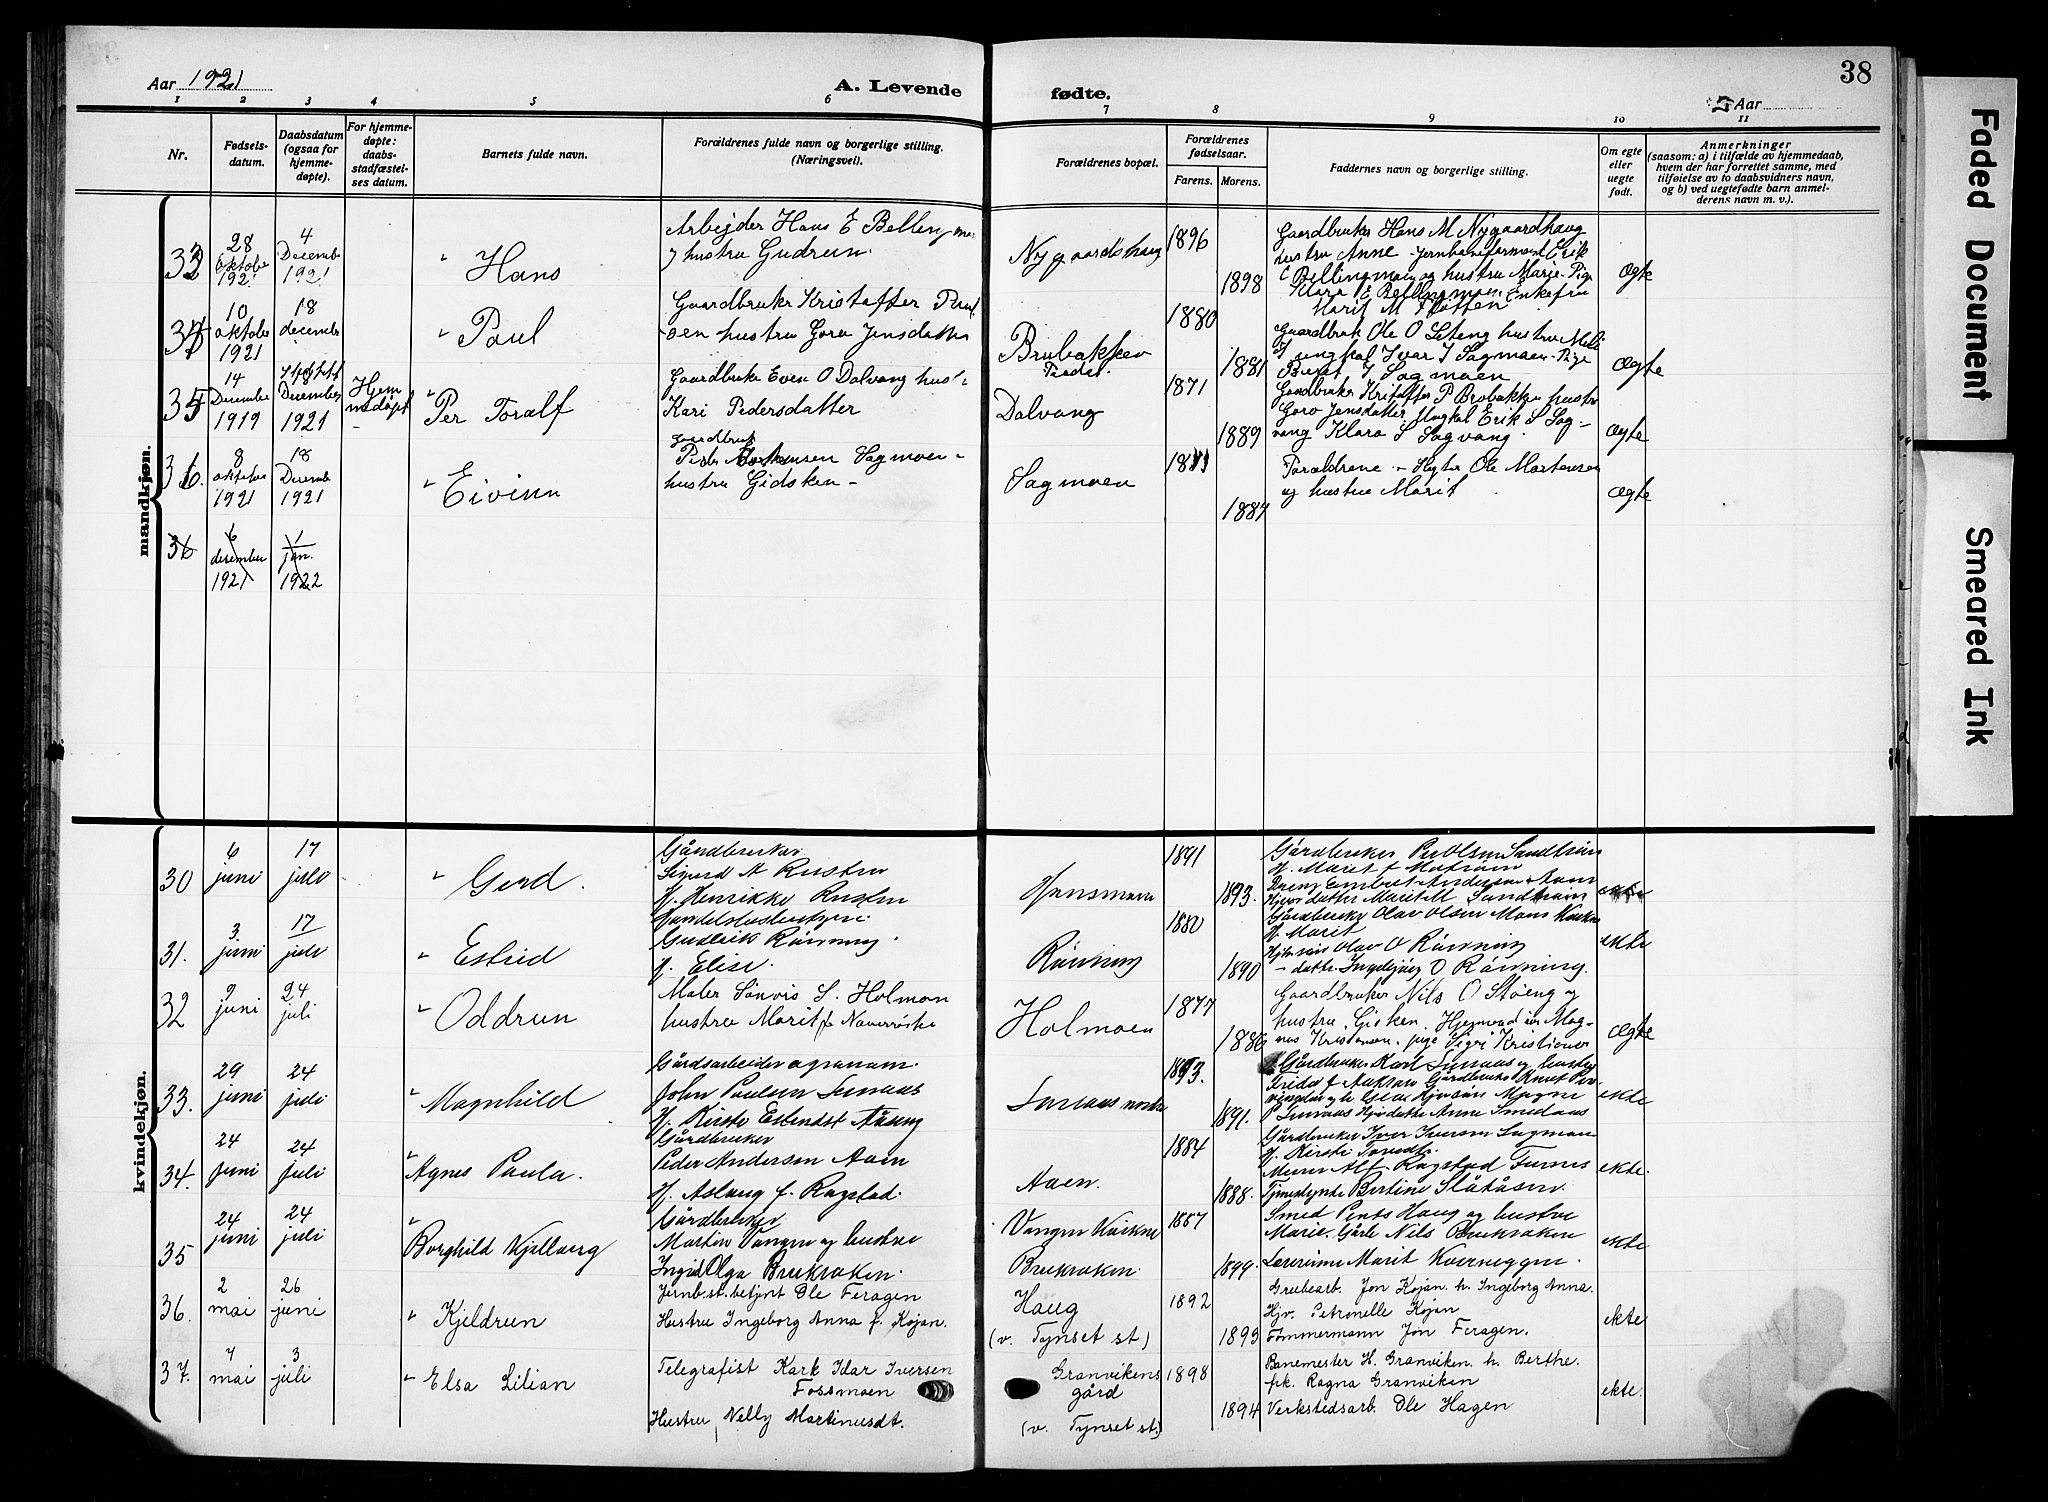 Aar 1921
A. Levende
fødte.
Aar
38
1 2 3 4 5 6 7 8 9 10 11
Nr.
Fødsels-
datum.
Daabsdatum
(ogsaa for
hjemme-
døpte).
For hjemme-
døpte:
daabs-
stadfæstel-
ses datum.
Barnets fulde navn.
Forældrenes fulde navn og borgerlige stilling.
(Næringsvei).
Forældrenes bopæl.
Forældrenes
fødselsaar.
Farens. Morens.
Faddernes navn og borgerlige stilling.
Om egte
eller
uegte
født.
Anmerkninger
(saasom: a) i tilfælde av hjemmedaab,
hvem der har forrettet samme, med
tilføielse av to daabsvidners navn,
og b) ved uegtefødte barn anmel-
derens navn m. v.).
mandkjøn.
33
28
Oktober
1921
4
Decemb
1921
" Hans
Arbejder Hans E Bellingmo
hustru Gudrun
Nygaardshaug
1896
1898
Gaardbruker Hans M Nygaardhaug
hustru Anne Jernbaneformand Erik
E Bellingmoen og hustru Marie Pige
Klara E Bellingmoen Enkefru
Marit M
ægte
34
10
oktober
1921
18
december
" Paul
Gaardbruker Kristoffer Paul
sen hustru Goro Jensdatter
Brubakken
Tindst.
1880
1881
Gaardbruk Ole O Leteng hustru Mali
J ungkal Ivar I Sagmoen Pige
Beret I Sagmoen
ægte
35
14
December
1919
18
December
1921
Hjem
medøpt
" Per Toralf
Gaardbruker Even O Dalvang hust-
Kari Pedersdatter
Dalvang
1871
1889
Gaardbruker Kristoffer P Brobakken hustru
Goro Jensdatter Ungkal Erik S Sag-
vang Klara S Sagvang
ægte
36.
8
oktober
1921
18
Decemb
1921
" Eivinn
gaardbruk
Peder Mortensen Sagmoen
hustru Gidsken
Sagmoen
1887
Foraldrene - Ole Mortensen
og hustru Marit
ægte
36
6
desember
1921
1
jan.
1922
kvindekjøn.
30
6
juni
17
juli
" Gerd.
Gårdbruker
Sigurd A Rusten
H. Henrikke Rusten
Hansmoen
1891
1893.
Gårdbruker Per Olsen Sandtrøen
H. Marit f
Dreng Embret Andersen Aaen
Hjv datter Marit M Sandtrøen
ekte
31.
3
juni
17
juli
" Estrid
Gudleik Rønning.
H. Elise.
Rønning
1880
1890
Gårdbruker Olav Olsen Moan Kvikne
H. Marit
Olav O Rønning
- datter Ingebjørg O Rønning.
ekte
32
9
juni
24
juli
" Oddrun
Maler Sønvis S. Holmen
hustru Marit f Naverråske
Holmoen
1877
1886
Gaardbruker Nils O Støeng og
hustru Gisken. Mag-
nus Kristensen pige Sigri Kristianse
ægte
33.
29
juni
24
juli
Magnhild
Gårdsarbeider agronom
John Paulsen Sunaas
H. Kirsti Estendst Aaseng
1893.
1891.
Gårdbruker Karl Sunaas og hustru
Frida f Gårdbruker Knut
P Sunaas Hjv datter Anne Smedaas
ekte
34.
24
juni
24
juli
" Agnes Paula.
Gårdbruker
Peder Andersen Aaen
H. Aslaug f. Rogstad.
Aaen.
1884
1888.
Gårdbruker Iver Iversen Sagmoen
H. Kirsti
Murer Alf Rogstad Furnes
Bertine Slåtåsen.
ekte.
35
24
juni
24
juli
" Borghild Kjellaug
Gårdbruker
Martin Vangen og hustru
Ingrid Olga Brukraken.
Vangen Kvikne
Brukraken.
1887
1899.
Smed Haug og hustru
Marie. Gårbr Nils Brukraken
Lærerinne Marit Kverneggen.
ekte
36.
2
mai
26
juni
" Kjeldrun
Jernb.st.betjnt Ole Feragen
Hustru Ingeborg Anna f. Kojan.
Haug
(v. Tynset st)
1892
1893
Grubearb. Jon Kojan. h. Ingeborg Anna.
Hjv. Petronelle Kojan
Tømmermann Jon Feragen.
ekte
37.
7
mai
3
juli
" Elsa Lilian
Telegrafist Kark Idar Iversen
Fossmoen
Hustru Nelly Martinusdt.
Granvikens
gård
(v. Tynset st.)
1898
1894
Banemester H. Granviken. h. Berthe.
pk. Ragna Granviken
Verkstedsarb. Ole Hagen
ekte.
Faded Document
Smeared Ink